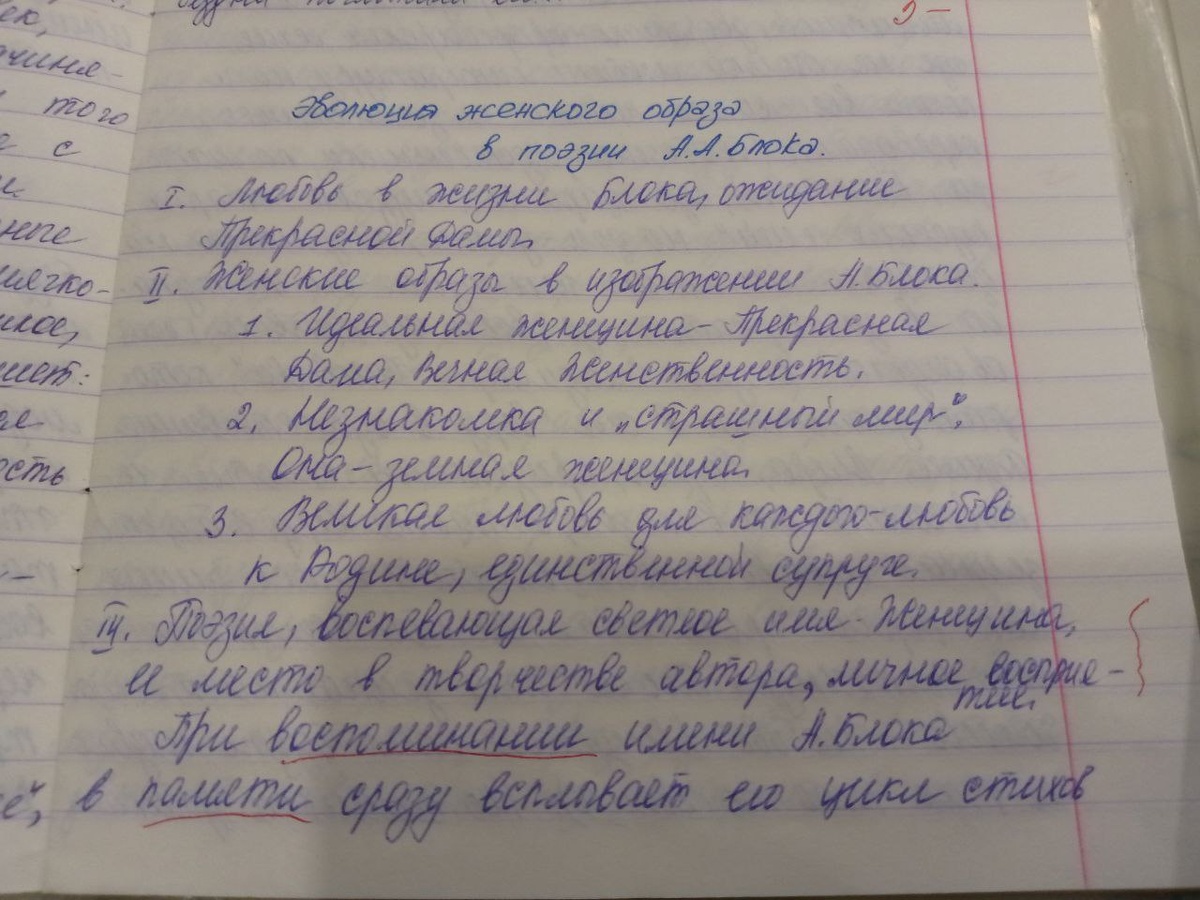 5-
Эволюция женского образа
в поэзии А.А.Блока.
I. Любовь в жизни Блока, ожидание
Прекрасной Дамы.
II. Женские образы в изображении А.Блока.
1. Идеальная женщина - Прекрасная
Дама, Вечная Женственность.
2. Незнакомка и „страшный мир".
Она - земная женщина.
3. Великая любовь для каждого - любовь
к Родине, единственной супруге.
III. Поэзия, воспевающая светлое имя - Женщина,
ее место в творчестве автора, личное восприя-
тие.
При воспоминании имени А.Блока
в памяти сразу всплывает его цикл стихов
ек,
чиня-
того
с
мягко-
ость